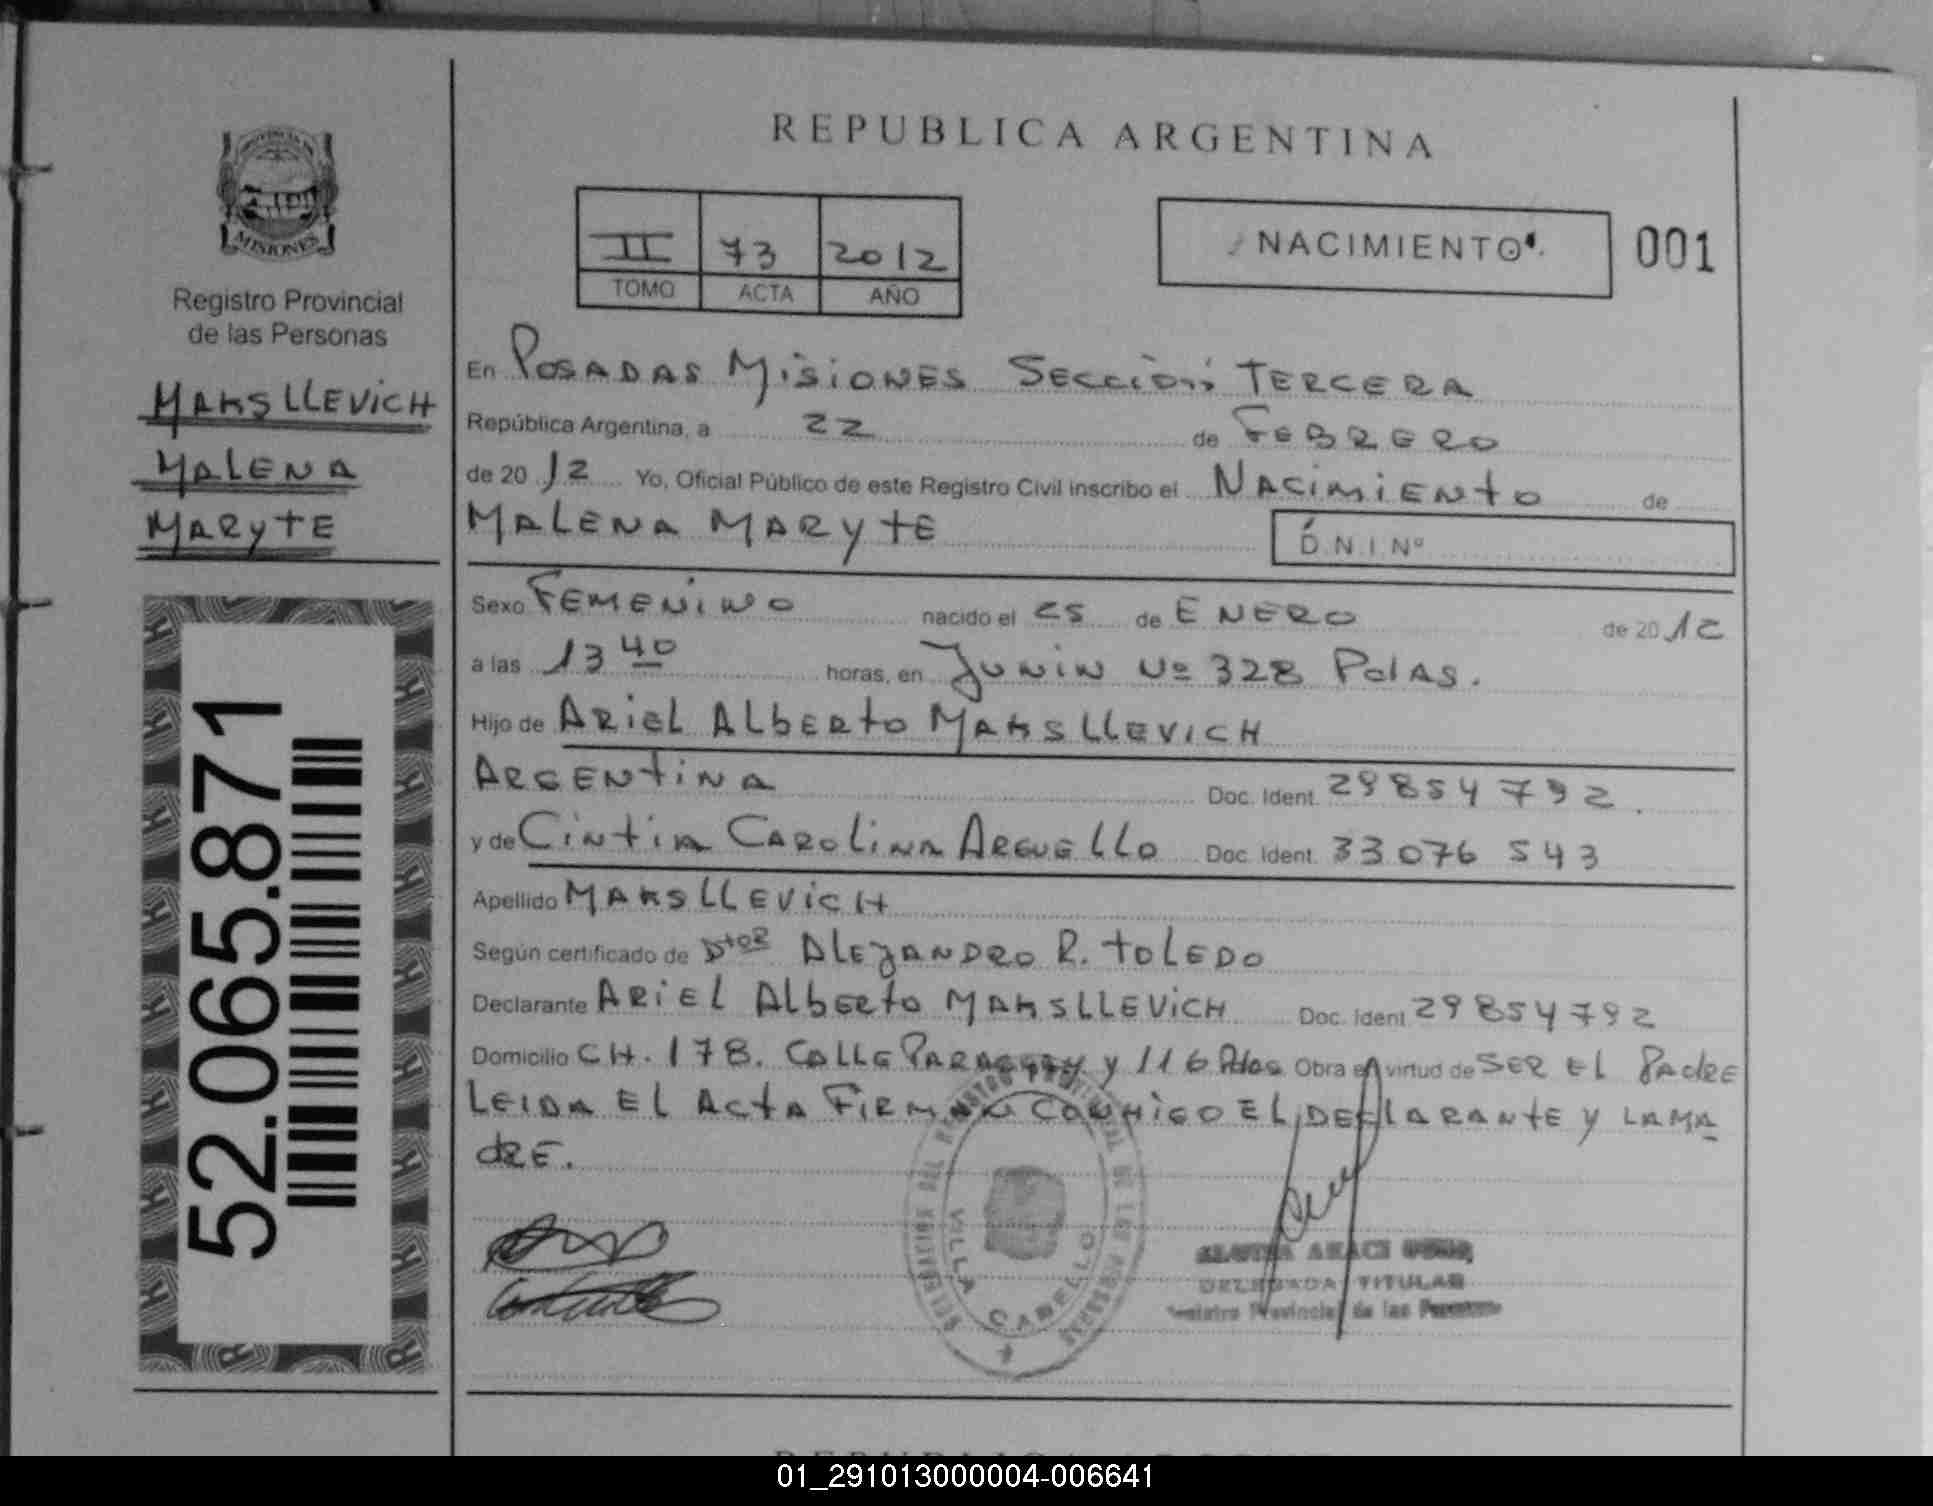 REPUBLICA ARGENTINA
PROVINCIA
MISIONES
Registro Provincial
de las Personas
MAKSLLEVICH
MALENA
MARYTE
52.065.871
II 73 2012
TOMO ACTA AÑO
NACIMIENTO 001
En POSADAS MISIONES SECCIÓN TERCERA
República Argentina, a 22 de FEBRERO
de 2012 Yo, Oficial Público de este Registro Civil inscribo el NACIMIENTO de
MALENA MARYTE D.N.I.Nº
Sexo FEMENINO nacido el 25 de ENERO de 2012
a las 13 40 horas, en JUNIN Nº 328 PdAS.
Hijo de ARIEL ALBERTO MAKSLLEVICH
ARGENTINA Doc. Ident. 29854792.
y de CINTIA CAROLINA ARGUELLO Doc. Ident. 33076543
Apellido MAKSLLEVICH
Según certificado de DTOR ALEJANDRO R. TOLEDO
Declarante ARIEL ALBERTO MAKSLLEVICH Doc. Ident 29854792
Domicilio CH. 178. CALLE PARAGUAY Y 116 Pdas Obra en virtud de SER EL PADRE
LEIDA EL ACTA FIRMAN CONMIGO EL DECLARANTE Y LA MA
DRE.
DELEGACION DEL REGISTRO PROVINCIAL DE LAS PERSONAS
VILLA CABELLO
DELEGADA TITULAR
Registro Provincial de las Personas
01_291013000004-006641